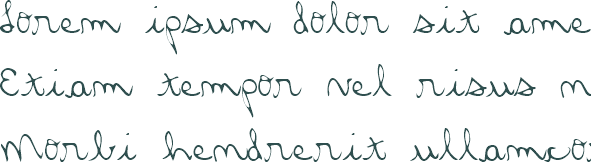 Lorem ipsum dolor sit ame
Etiam tempor vel risus n
Morbi hendrerit ullamco